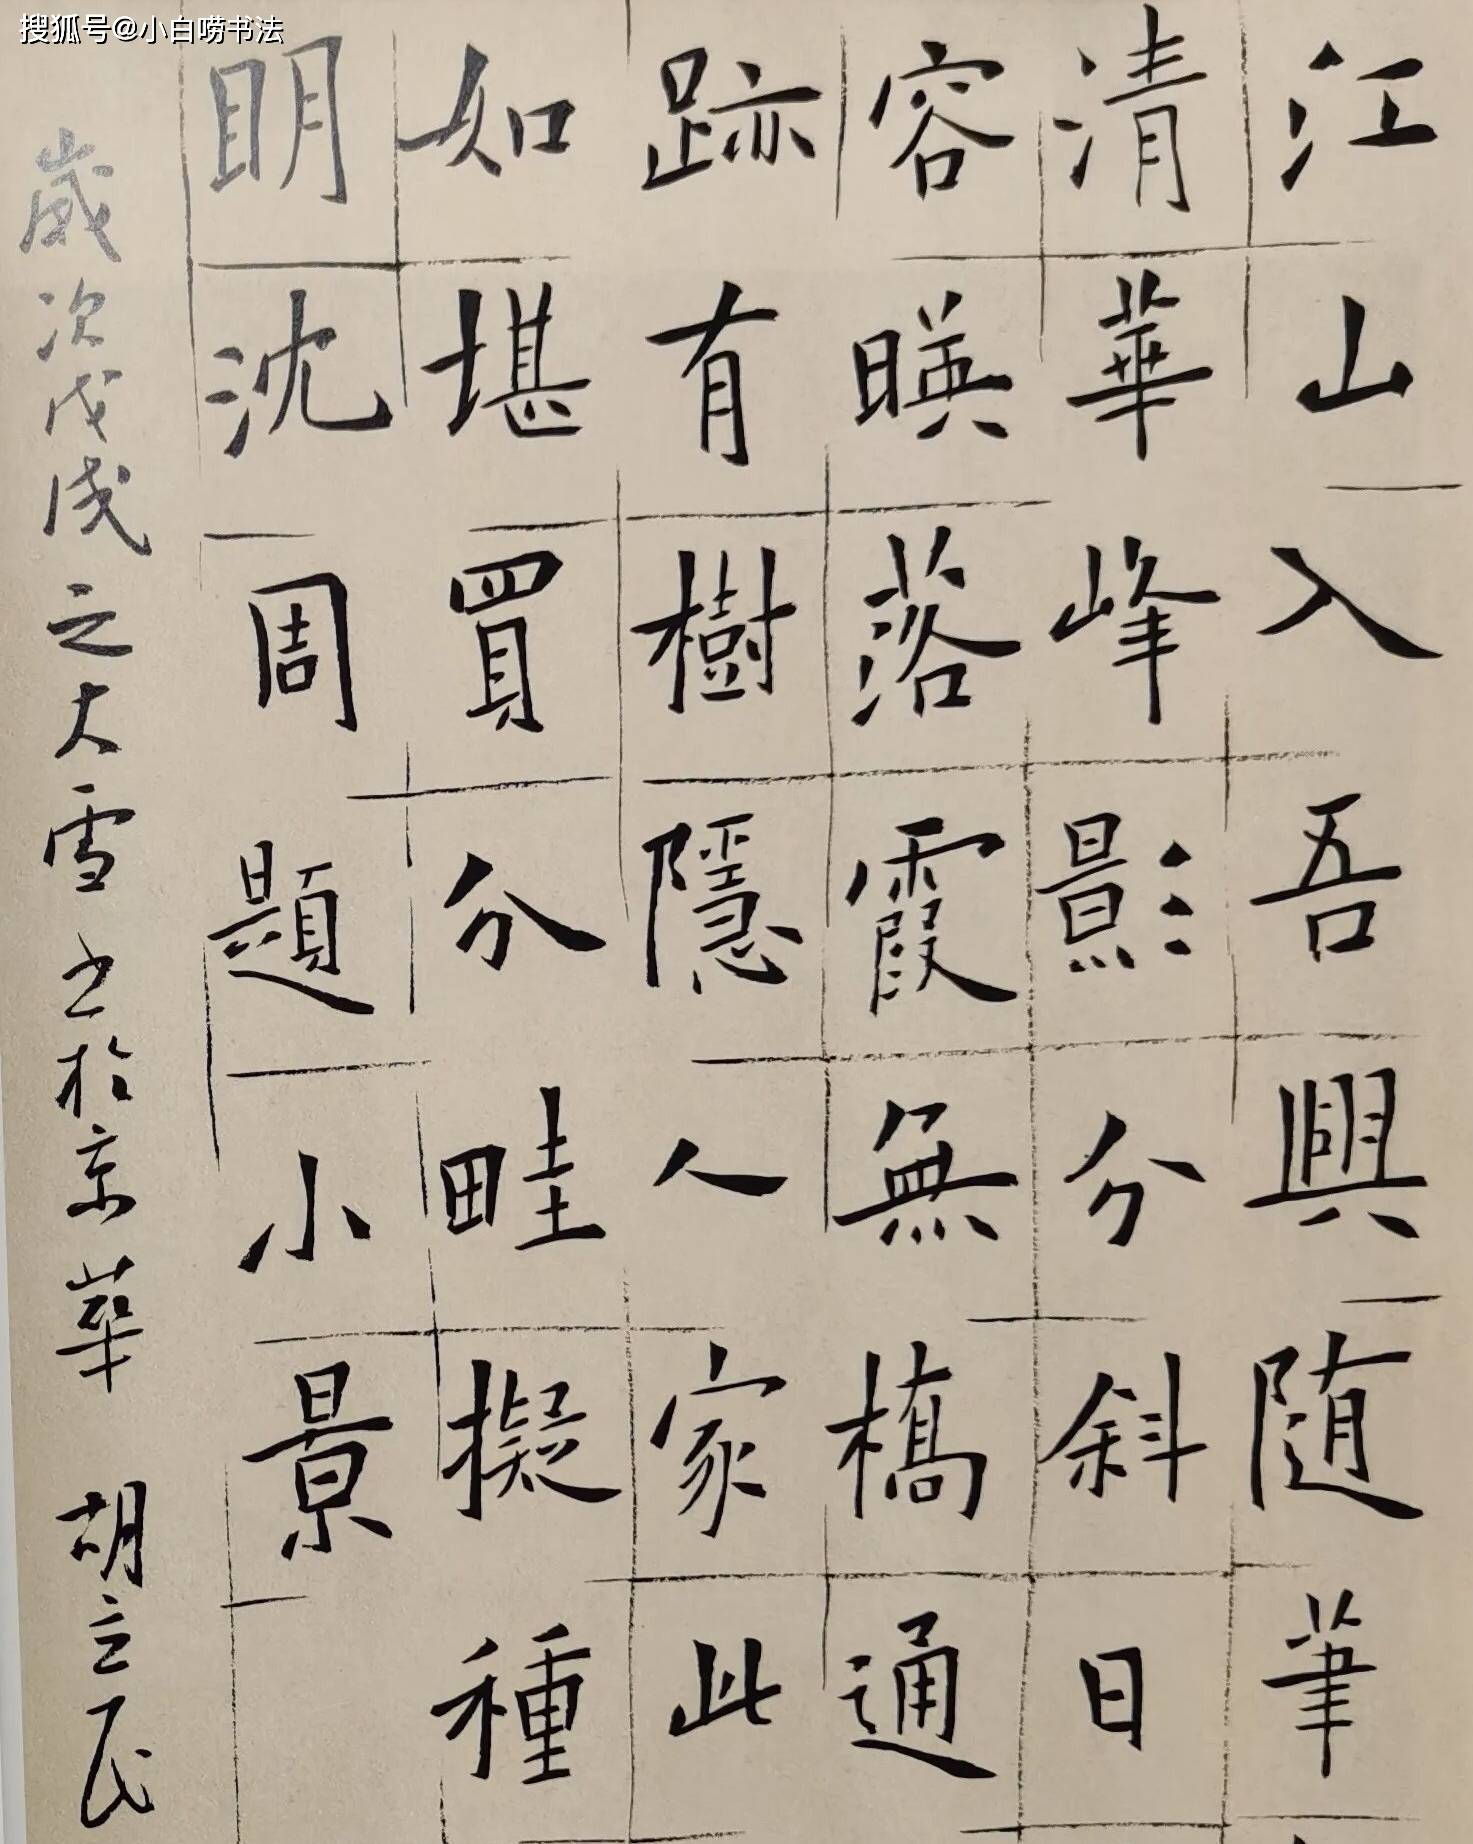 搜狐号@小白唠书法
江山入吾興随筆
清華峰影分斜日
容暎落霞無橋通
跡有樹隱人家此
如堪買分畦擬種
明沈周題小景
歲次戊戌之大雪書於京華 胡立民